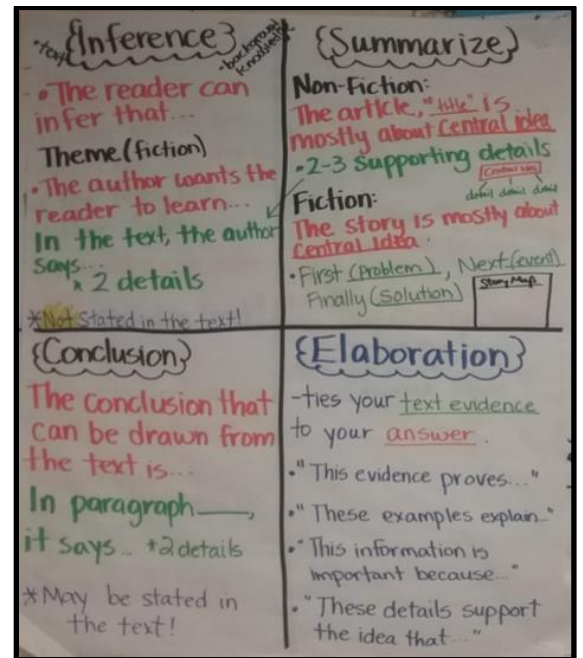 {Inference}
+text
+background
knowledge
• The reader can
infer that...
Theme (fiction)
• The author wants the
reader to learn...
In the text, the author
says...
* 2 details
*Not Stated in the text!
{Summarize}
Non-Fiction:
The article, "title" is
mostly about Central idea
• 2-3 supporting details
Central idea
detail detail detail
Fiction:
The story is mostly about
Central Idea.
• First (Problem), Next (event),
Finally (Solution)
Story Map
{Conclusion}
The conclusion that
can be drawn from
the text is...
In paragraph ___,
it says... *2 details
*May be stated in
the text!
{Elaboration}
-ties your text evidence
to your answer.
• "This evidence proves..."
• "These examples explain..."
• "This information is
important because..."
• "These details support
the idea that..."